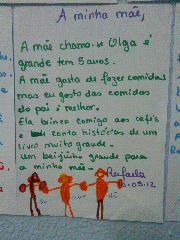 A minha mãe,
A mãe chama-se Olga é
grande tem 5 anos.
A mãe gosta de fazer comidas
mas eu gosto das comidas
do pai é melhor.
Ela brinca comigo aos cafés
e conta histórias de um
livro muito grande.
um beijinho grande para
a minha mãe.
Rafaela
03.05.12